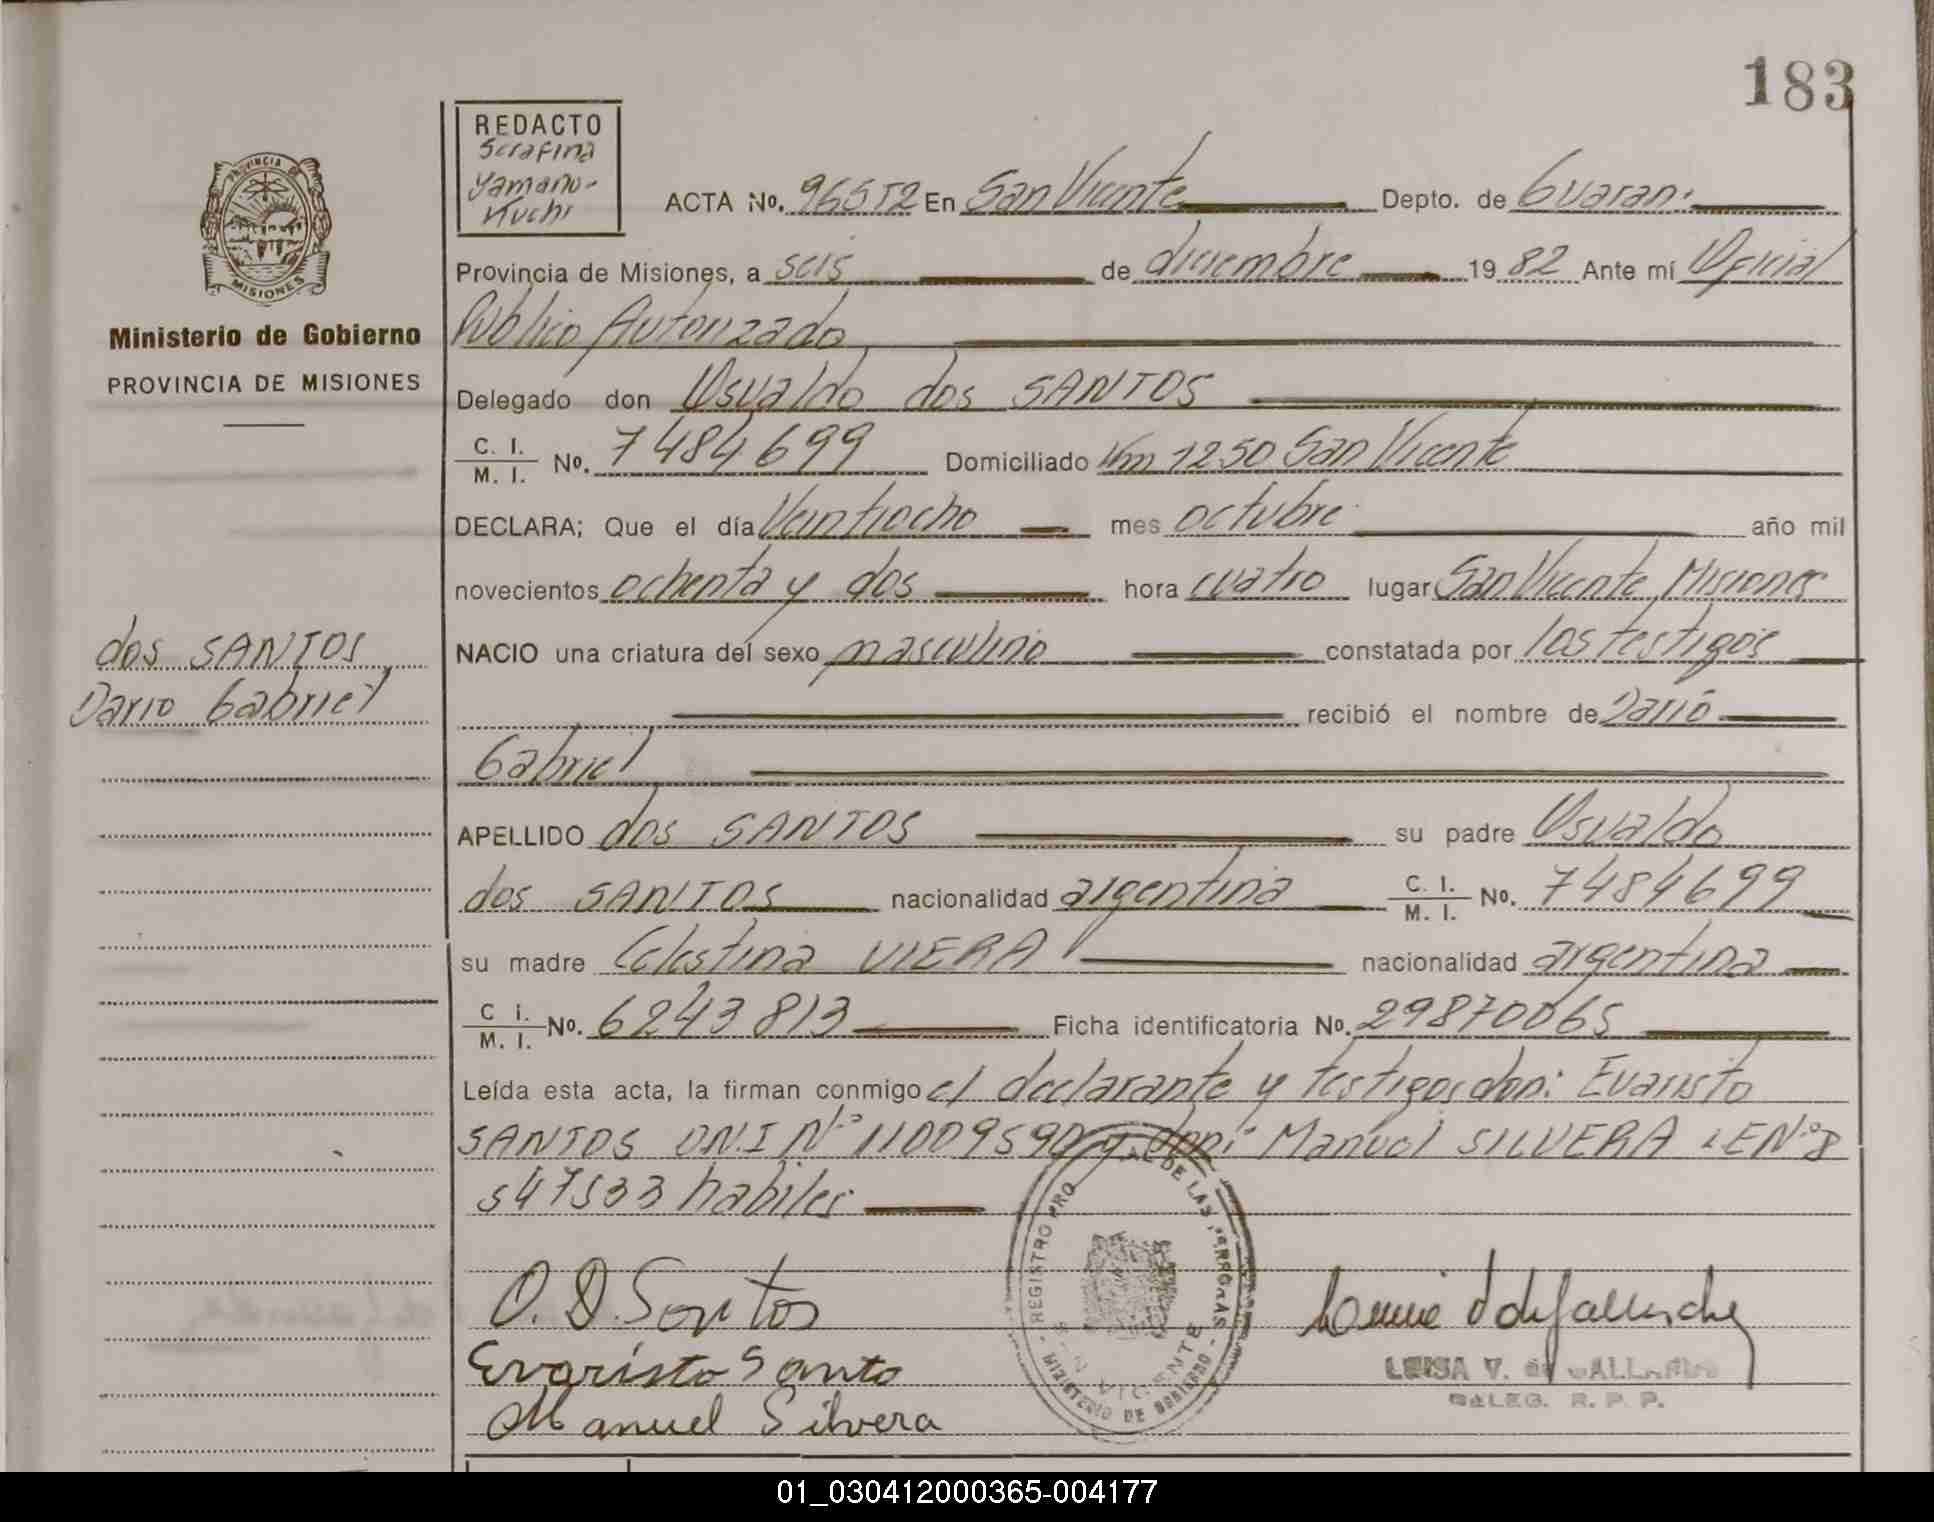 183
REDACTO
Serafina
Yamano-
Kuchi
PROVINCIA DE
MISIONES
Ministerio de Gobierno
PROVINCIA DE MISIONES
dos SANTOS
Dario Gabriel
ACTA No. 96512 En San Vicente Depto. de Guarani
Provincia de Misiones, a seis de diciembre 1982 Ante mí Oficial
Público Autorizado
Delegado don Osvaldo dos SANTOS
C. I. / M. I. No. 7484699 Domiciliado Km 1250 San Vicente
DECLARA; Que el día Veintiocho mes octubre año mil
novecientos ochenta y dos hora cuatro lugar San Vicente Misiones
NACIO una criatura del sexo masculino constatada por los testigos
recibió el nombre de Darío
Gabriel
APELLIDO dos SANTOS su padre Osvaldo
dos SANTOS nacionalidad argentina C. I. / M. I. No. 7484699
su madre Celestina VIERA nacionalidad argentina
C. I. / M. I. No. 6243813 Ficha identificatoria No. 29870065
Leída esta acta, la firman conmigo el declarante y testigos don: Evaristo
SANTOS D.N.I Nº 11009590 y don: Manuel SILVERA LE Nº 8
547533 habiles
O. D. Santos
Evaristo Santo
Manuel Silvera
REGISTRO PRO AL DE LAS PERSONAS
SAN VICENTE
MINISTERIO DE GOBIERNO
LUISA V. de
DELEG. R. P. P.
01_030412000365-004177